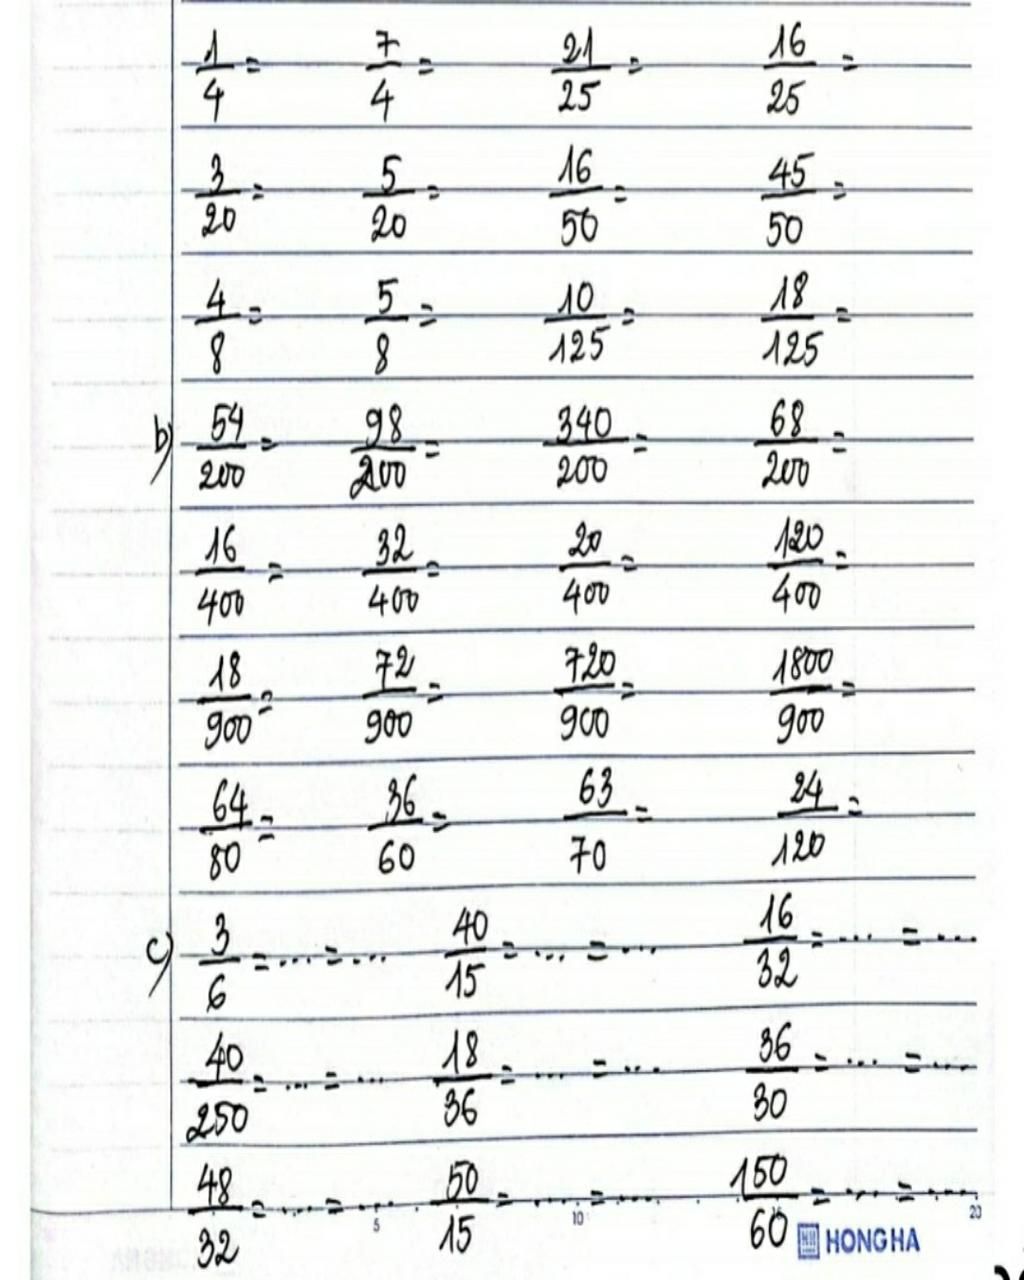 1/4 = 7/4 = 21/25 = 16/25 =
3/20 = 5/20 = 16/50 = 45/50 =
4/8 = 5/8 = 10/125 = 18/125 =
b) 54/200 = 98/200 = 340/200 = 68/200 =
16/400 = 32/400 = 20/400 = 120/400 =
18/900 = 72/900 = 720/900 = 1800/900 =
64/80 = 36/60 = 63/70 = 24/120 =
c) 3/6 = ... = ... 40/15 = ... = ... 16/32 = ... = ...
40/250 = ... = ... 18/36 = ... = ... 36/30 = ... = ...
48/32 = ... = ... 50/15 = ... = ... 150/60 = ... = ...
5 10 15 20
HONG HA